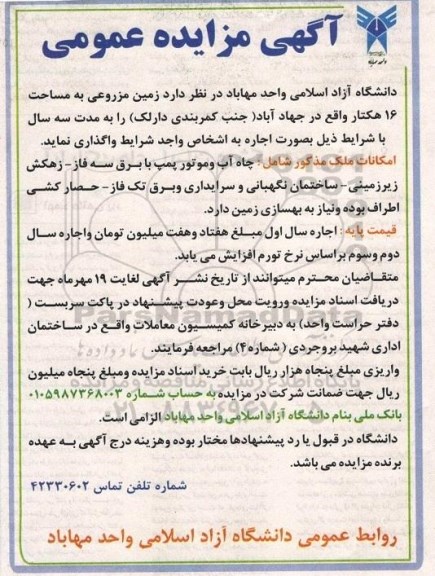 آگهی مزایده عمومی
دانشگاه آزاد اسلامی واحد مهاباد در نظر دارد زمین مزروعی به مساحت
۱۶ هکتار واقع در جهاد آباد( جنب کمربندی دارلک) را به مدت سه سال
با شرایط ذیل بصورت اجاره به اشخاص واجد شرایط واگذاری نماید.
امکانات ملک مذکور شامل : چاه آب وموتور پمپ با برق سه فاز- زهکش
زیرزمینی- ساختمان نگهبانی و سرایداری وبرق تک فاز- حصار کشی
اطراف بوده ونیاز به بهسازی زمین دارد.
قیمت پایه : اجاره سال اول مبلغ هفتاد وهفت میلیون تومان واجاره سال
دوم وسوم براساس نرخ تورم افزایش می یابد.
متقاضیان محترم میتوانند از تاریخ نشر آگهی لغایت ۱۹ مهرماه جهت
دریافت اسناد مزایده ورویت محل وعودت پیشنهاد در پاکت سربست (
دفتر حراست واحد) به دبیرخانه کمیسیون معاملات واقع در ساختمان
اداری شهید بروجردی ( شماره۴) مراجعه فرمایند.
واریزی مبلغ پنجاه هزار ریال بابت خرید اسناد مزایده ومبلغ پنجاه میلیون
ریال جهت ضمانت شرکت در مزایده به حساب شماره ۰۱۰۵۹۸۷۳۶۸۰۰۳
بانک ملی بنام دانشگاه آزاد اسلامی واحد مهاباد الزامی است.
دانشگاه در قبول یا رد پیشنهادها مختار بوده وهزینه درج آگهی به عهده
برنده مزایده می باشد.
شماره تلفن تماس ۴۲۳۳۰۶۰۲
روابط عمومی دانشگاه آزاد اسلامی واحد مهاباد
ParsNamadData